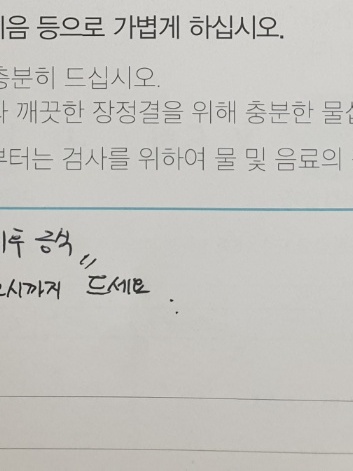 음 등으로 가볍게 하십시오.
충분히 드십시오.
깨끗한 장정결을 위해 충분한 물
부터는 검사를 위하여 물 및 음료의
이후 금식
시까지 드세요.